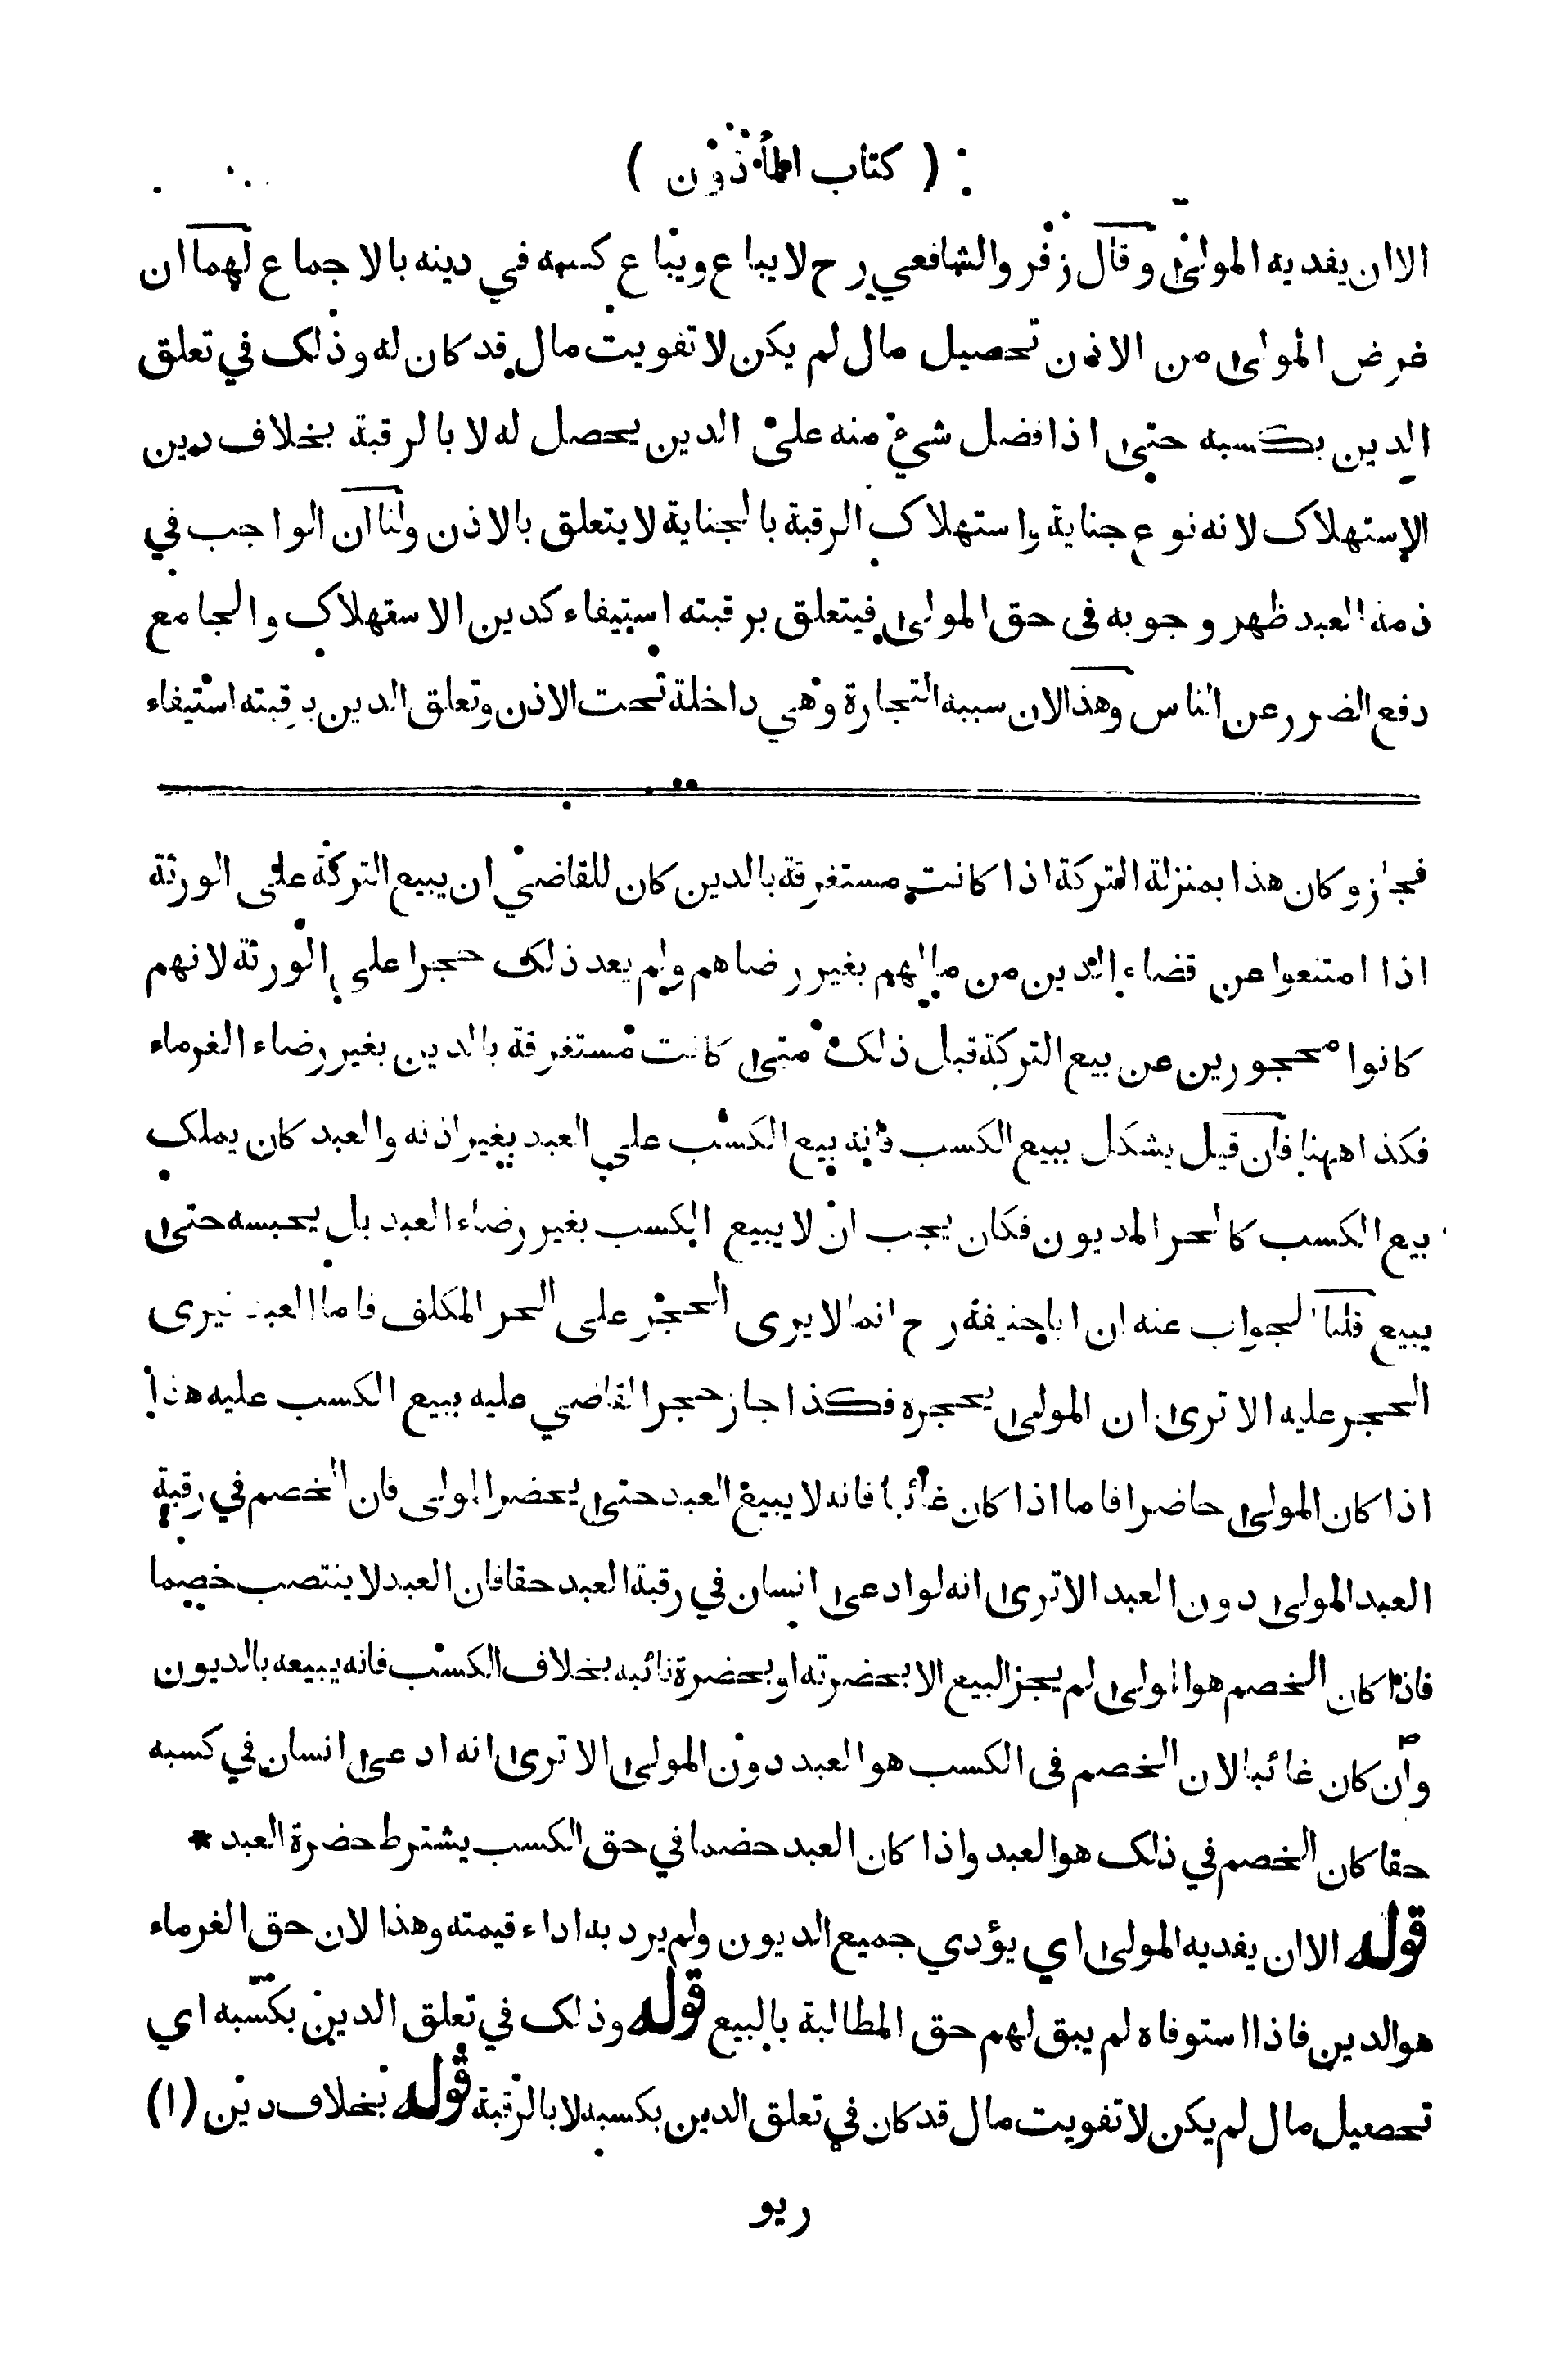 ( كتاب المأذون )
الا ان يفديه المولى وقال زفر والشافعي رح لا يباع ويباع كسبه في دينه بالاجماع لهما ان
غرض المولى من الاذن تحصيل مال لم يكن لا تفويت مال قد كان له وذلك في تعلق
الدين بكسبه حتى اذا فضل شيء منه على الدين يحصل له لا بالرقبة بخلاف دين
الاستهلاك لانه نوع جناية واستهلاك الرقبة بالجناية لا يتعلق بالاذن ولنا ان الواجب في
ذمة العبد ظهر وجوبه في حق المولى فيتعلق برقبته استيفاء كدين الاستهلاك والجامع
دفع الضرر عن الناس وهذا لان سببه التجارة وهي داخلة تحت الاذن وتعلق الدين برقبته استيفاء
فجاز وكان هذا بمنزلة التركة اذا كانت مستغرقة بالدين كان للقاضي ان يبيع التركة على الورثة
اذا امتنعوا عن قضاء الدين من مالهم بغير رضاهم ولم يعد ذلك حجرا على الورثة لانهم
كانوا محجورين عن بيع التركة قبل ذلك متى كانت مستغرقة بالدين بغير رضاء الغرماء
فكذا ههنا فان قيل يشكل ببيع الكسب فانه بيع الكسب على العبد بغير اذنه والعبد كان يملك
بيع الكسب كالحر المديون فكان يجب ان لا يبيع الكسب بغير رضاء العبد بل يحبسه حتى
يبيع قلنا الجواب عنه ان ابا حنيفة رح انما لا يرى الحجر على الحر المكلف فاما العبد فيرى
الحجر عليه الا ترى ان المولى يحجره فكذا جاز حجر القاضي عليه ببيع الكسب عليه هذا
اذا كان المولى حاضرا فاما اذا كان غائبا فانه لا يبيع العبد حتى يحضر المولى فان الخصم في رقبة
العبد المولى دون العبد الا ترى انه لو ادعى انسان في رقبة العبد حقا فان العبد لا ينتصب خصما
فاذا كان الخصم هو المولى لم يجز البيع الا بحضرته او بحضرة نائبه بخلاف الكسب فانه يبيعه بالديون
وان كان غائبا لان الخصم في الكسب هو العبد دون المولى الا ترى انه ادعى انسان في كسبه
حقا كان الخصم في ذلك هو العبد واذا كان العبد خصما في حق الكسب يشترط حضرة العبد *
قوله الا ان يفديه المولى اي يؤدي جميع الديون ولم يرد به اداء قيمته وهذا لان حق الغرماء
هو الدين فاذا استوفاه لم يبق لهم حق المطالبة بالبيع قوله وذلك في تعلق الدين بكسبه اي
تحصيل مال لم يكن لا تفويت مال قد كان في تعلق الدين بكسبه لا بالرقبة قوله بخلاف دين (١)
ريو